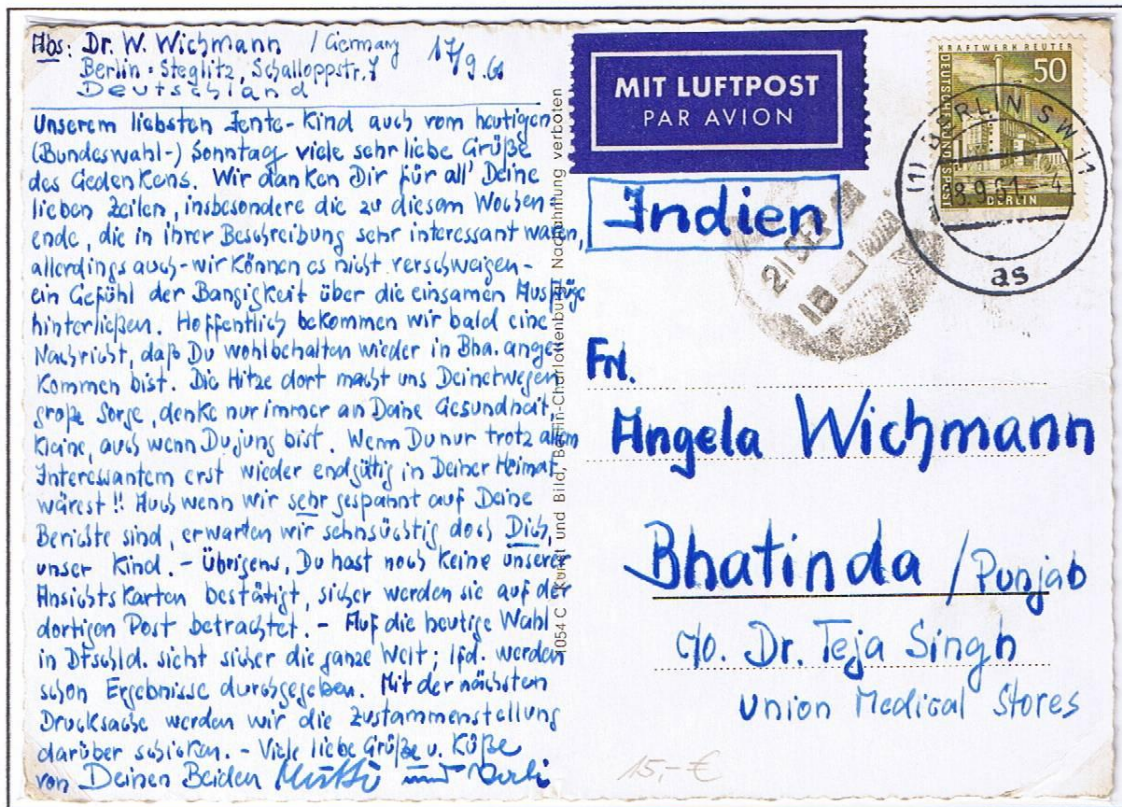 Abs: Dr. W. Wichmann / Germany 17/9.61
Berlin-Steglitz, Schalloppstr. 7
Deutschland
Unserem liebsten Jente-Kind auch vom heutigen
(Bundeswahl-) Sonntag viele sehr liebe Grüße
des Gedenkens. Wir danken Dir für all' Deine
lieben Zeilen, insbesondere die zu diesem Wochen-
ende, die in ihrer Beschreibung sehr interessant waren,
allerdings auch - wir können es nicht verschweigen -
ein Gefühl der Bangigkeit über die einsamen Ausflüge
hinterließen. Hoffentlich bekommen wir bald eine
Nachricht, daß Du wohlbehalten wieder in Bha. ange-
kommen bist. Die Hitze dort macht uns Deinetwegen
große Sorge, denke nur immer an Deine Gesundheit,
Kleine, auch wenn Du jung bist. Wenn Du nur trotz allem
Interessantem erst wieder endgültig in Deiner Heimat
wärest!! Auch wenn wir sehr gespannt auf Deine
Berichte sind, erwarten wir sehnsüchtig doch Dich,
unser Kind. - Übrigens, Du hast noch keine unserer
Ansichtskarten bestätigt, sicher werden sie auf der
dortigen Post betrachtet. - Auf die heutige Wahl
in Dtschld. sieht sicher die ganze Welt; lfd. werden
schon Ergebnisse durchgegeben. Mit der nächsten
Drucksache werden wir die Zusammenstellung
darüber schicken. - Viele liebe Grüße u. Küße
von Deinen Beiden Mutti und Vati
1054 C Kunst und Bild, Berlin-Charlottenburg Nachahmung verboten
MIT LUFTPOST
PAR AVION
KRAFTWERK REUTER
50
DEUTSCHE BUNDESPOST
BERLIN
(1) BERLIN SW 11
18.9.61 -- 4
as
Indien
21 SEP
Frl.
Angela Wichmann
Bhatinda / Punjab
c/o. Dr. Teja Singh
Union Medical Stores
15,- €